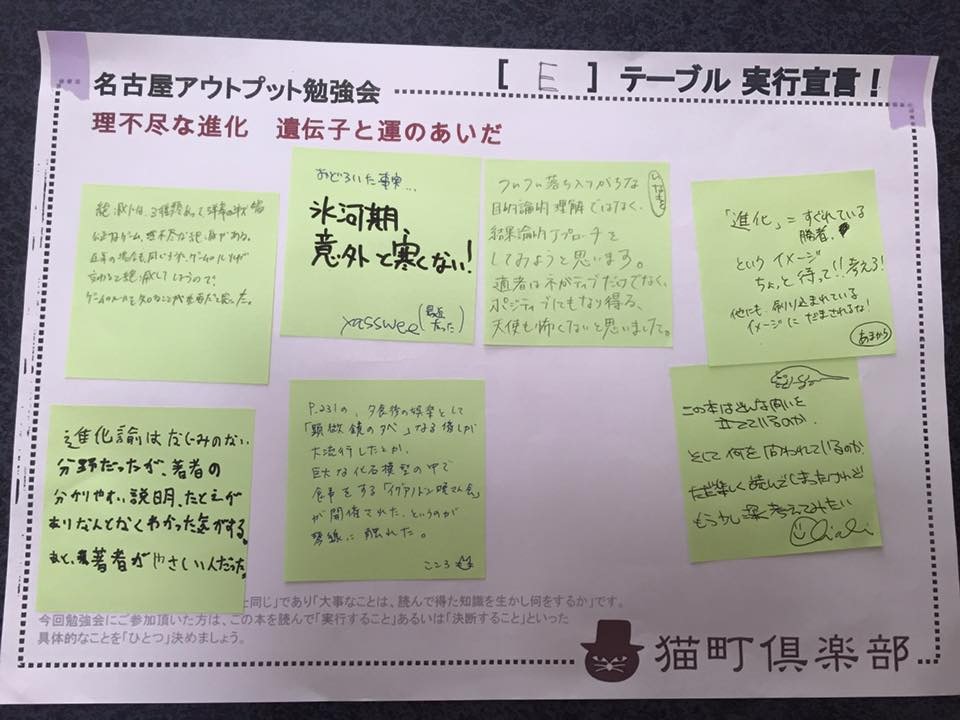 名古屋アウトプット勉強会
[ E ] テーブル 実行宣言!
理不尽な進化 遺伝子と運のあいだ
絶滅には、3種類あって
理不尽な
ゲームのルールが
おどろいた事実…
氷河期、
意外と寒くない!
yasswee (最近だった)
ついつい落ち入りがちな
目的論的理解ではなく、
結果論的アプローチを
してみようと思います。
適者はネガティブだけでなく、
ポジティブにもなり得る、
天使も怖くないと思いました。
「進化」=すぐれている
勝者、
というイメージ
ちょっと待って!!考えろ!
他にも刷り込まれている
イメージにだまされるな!
あまから
進化論はなじみのない
分野だったが、著者の
分かりやすい説明、たとえが
ありなんとなくわかった気がする。
あと、著者がやさしい人だった。
P.231の、夕食後の娯楽として
「顕微鏡の夕べ」なる催しが
大流行したとか、
巨大な化石模型の中で
食事をする「イグアノドン晩さん会」
が開催された、というのが
琴線に触れた。
こころ
この本はどんな問いを
立てているのか
そして何を問われているのか
ただ楽しく読んでしまったけれど
もう少し深く考えてみたい
同じ」であり「大事なことは、読んで得た知識を生かし何をするか」です。
今回勉強会にご参加頂いた方は、この本を読んで「実行すること」あるいは「決断すること」といった
具体的なことを「ひとつ」決めましょう。
猫町倶楽部